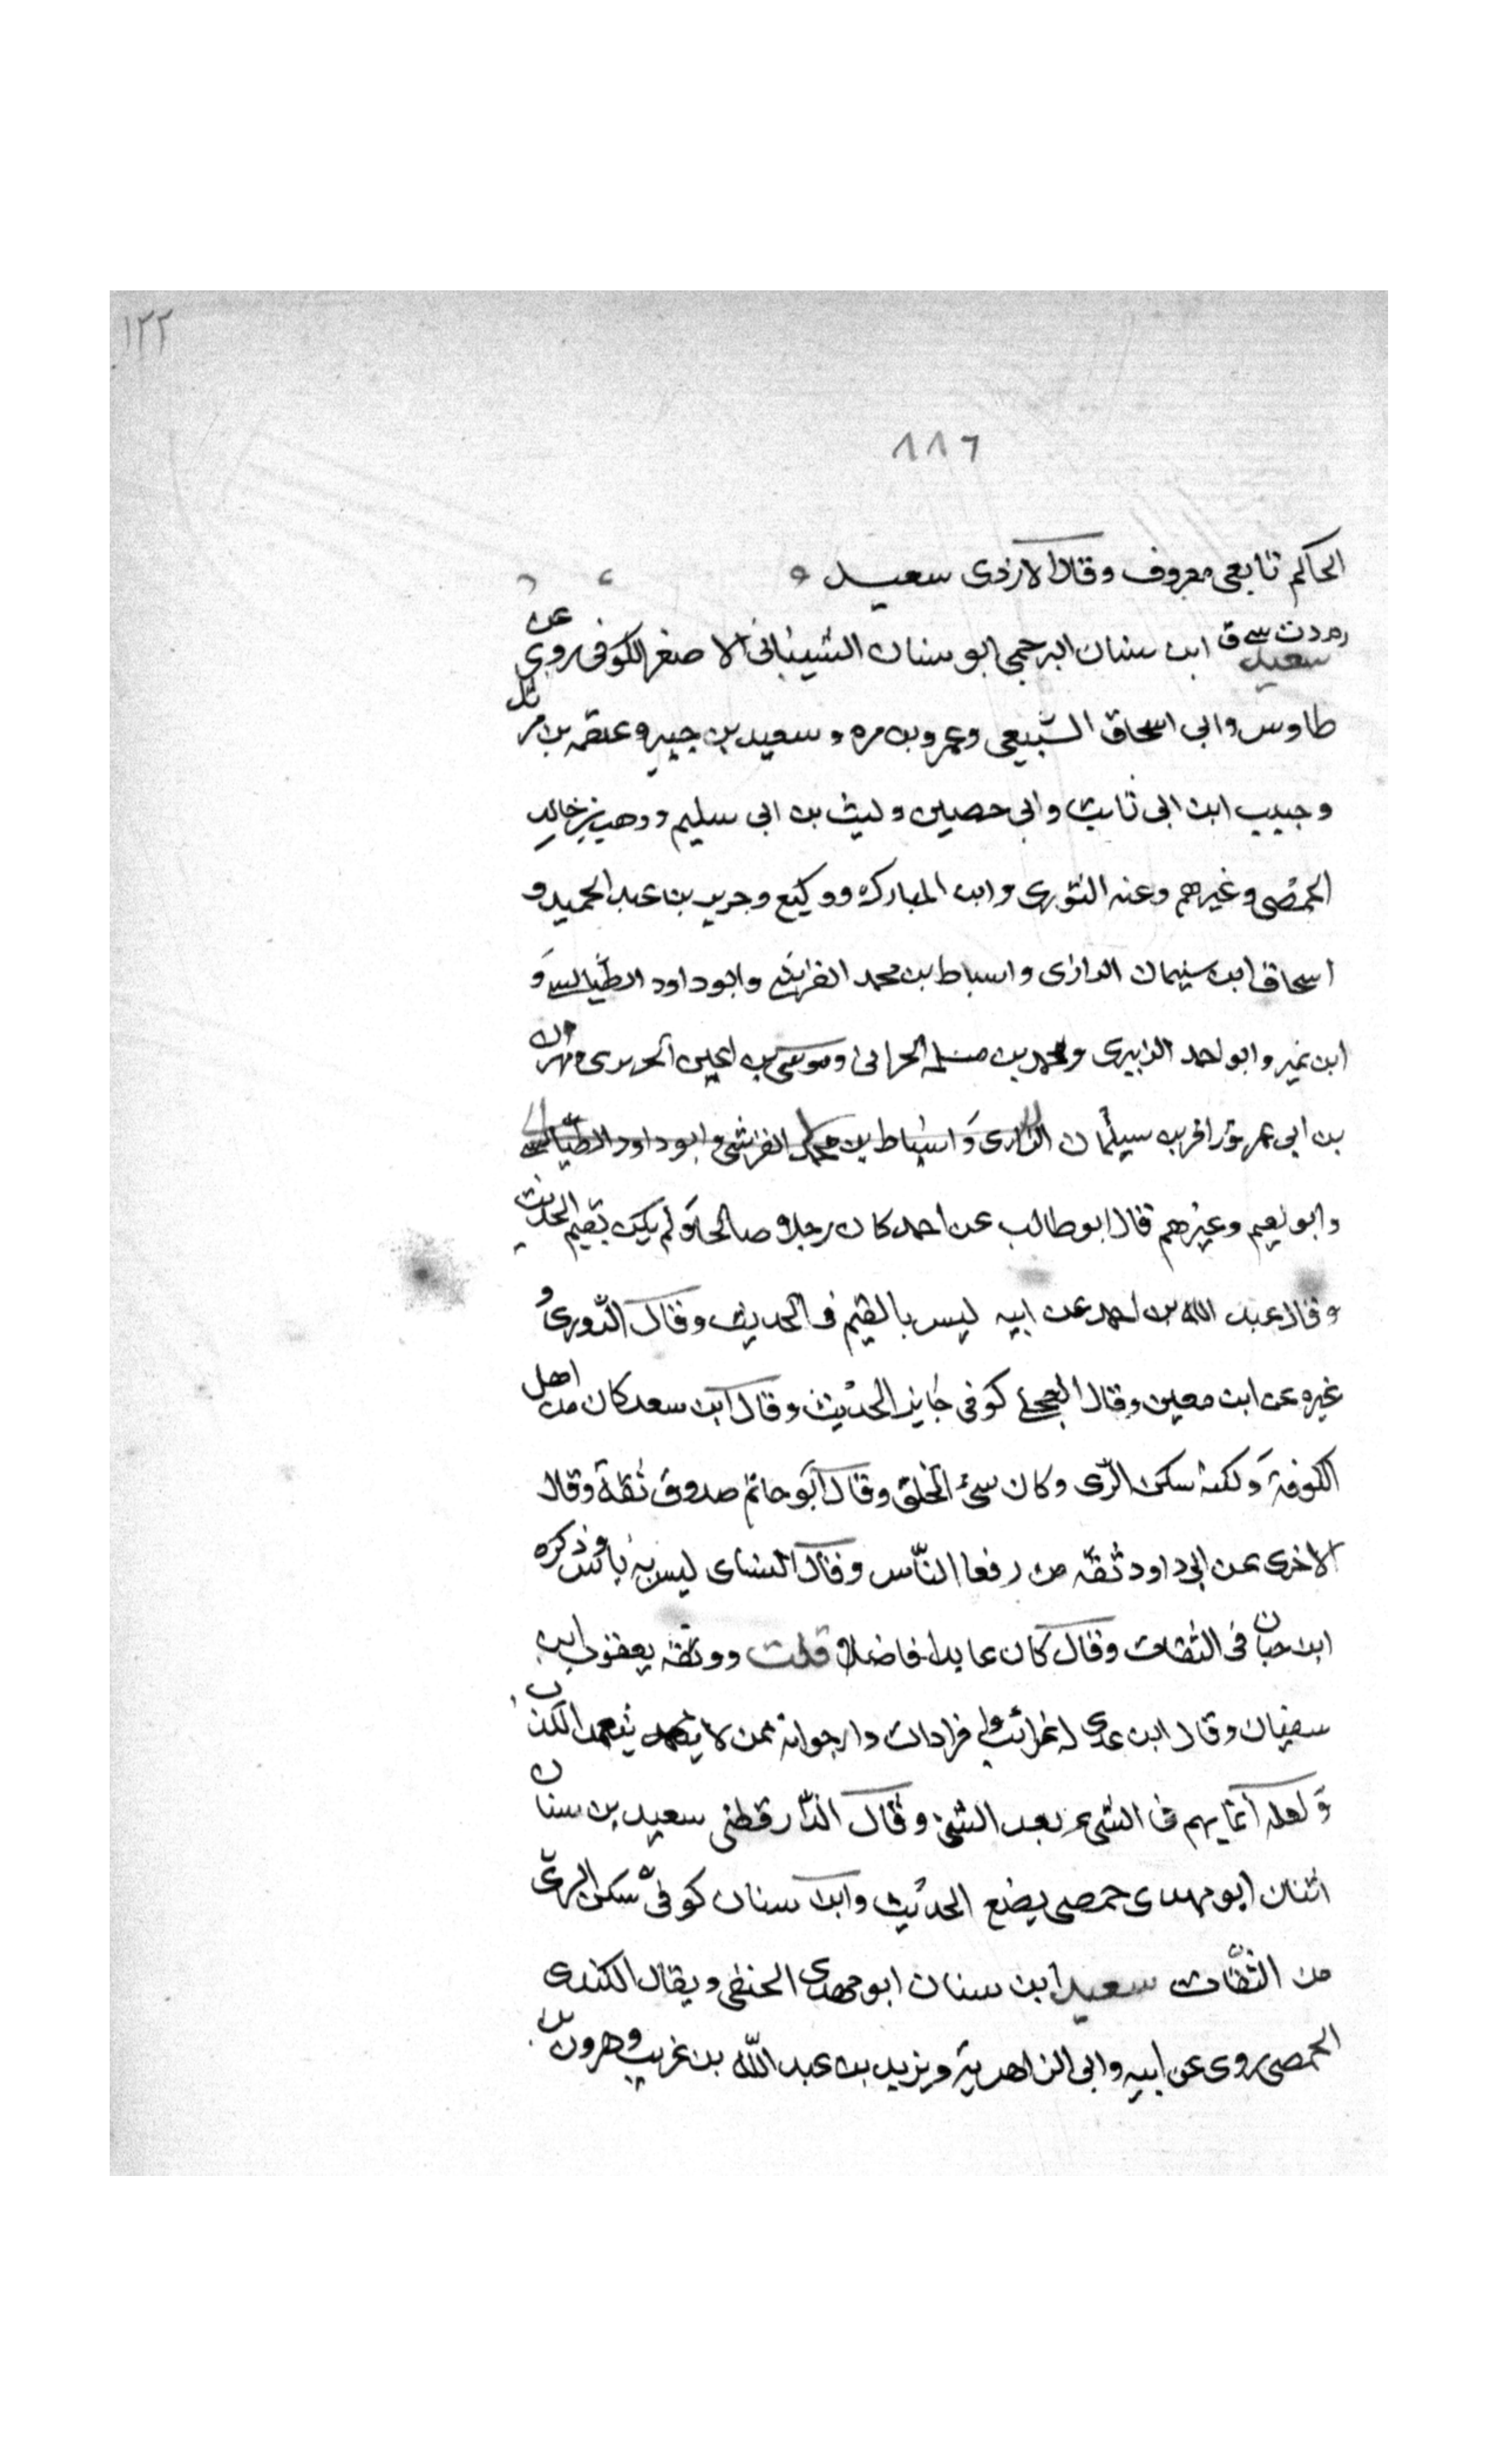 ١٢٢
٨٨٦
الحاكم تابعي معروف وقال الازدى سعيد
ر م د ت س ق سعيد ابن سنان البرجمي ابو سنان الشيباني الاصغر الكوفي روى عن
طاوس وابى اسحاق السبيعى وعمرو بن مره و سعيد بن جبير وعلقمه بن مرثد
وحبيب ابن ابى ثابت وابى حصين وليث بن ابى سليم ووهب بن خالد
الحمصى وغيرهم وعنه الثورى وابن المبارك ووكيع وجرير بن عبد الحميد و
اسحاق ابن سليمان الرازى واسباط بن محمد القرشى وابو داود الطيالسى و
ابن نمير وابو احمد الزبيرى ومحمد بن مسلمه الحرانى وموسى بن اعين الجزرى ومهران
بن ابى عمر سليمان الرازى واسباط بن محمد القرشى وابو داود الطيالسى
وابو نعيم وغيرهم قال ابو طالب عن احمد كان رجلا صالحا ولم يكن يقيم الحديث
وقال عبد الله بن احمد عن ابيه ليس بالقيم في الحديث وقال الدورى و
غيره عن ابن معين وقال العجلى كوفى جايز الحديث وقال ابن سعد كان من اهل
الكوفة ولكنه سكن الرى وكان سئ الخلق وقال ابو حاتم صدوق ثقة وقال
الاجرى عن ابى داود ثقه من رفعا الناس وقال النساى ليس به باس وذكره
ابن حبان فى الثقات وقال كان عابدا فاضلا قلت ووثقه يعقوب ابن
سفيان وقال ابن عدى له غرائب وافرادات وارجوانه ممن لا يتعمد الكذب
ولعله انما يهم فى الشىء بعد الشئ وقال الدار قطنى سعيد بن سنان
اثنان ابو مهدى حمصى يضع الحديث وابو سنان كوفى سكن الرى
من الثقات سعيد ابن سنان ابو مهدى الحنفى ويقال الكندى
الحمصى روى عن ابيه وابى الزاهرية ويزيد بن عبد الله بن غريب وهرون بن